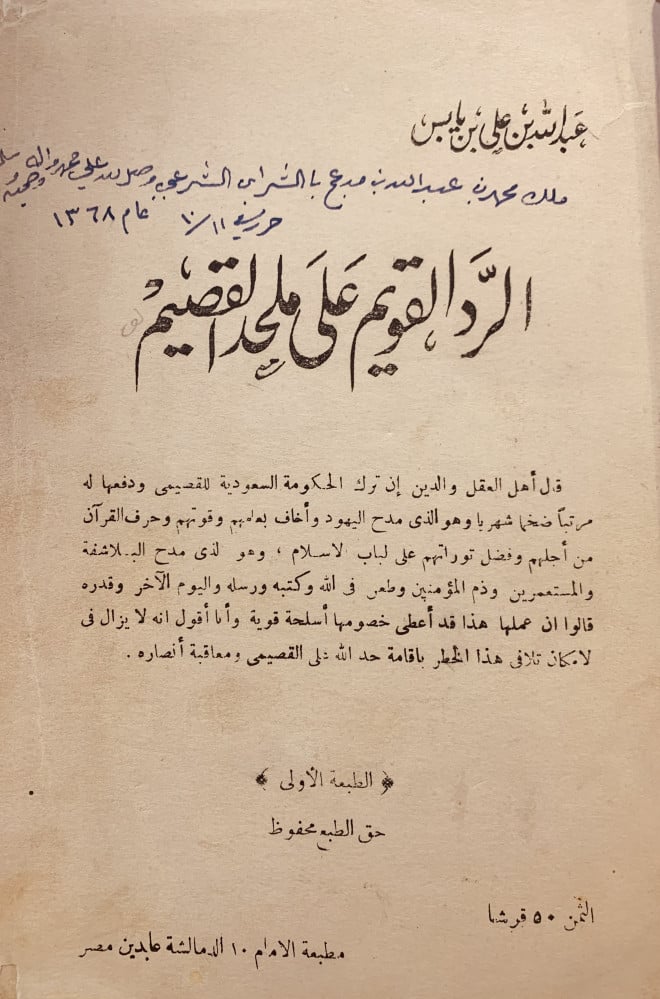 عبد الله بن علي بن يابس
ملك محمد بن عبد الله بن مدعج بالشراء الشرعي وصلى الله على محمد وآله وصحبه
حرر في ١٠/١١ عام ١٣٦٨
الرَّد القويم عَلَى ملحد القصيم
قال أهل العقل والدين إن ترك الحكومة السعودية للقصيمى ودفعها له
مرتباً ضخما شهريا وهو الذى مدح اليهود وأخاف بعلمهم وقوتهم وحرف القرآن
من أجلهم وفضل توراتهم على لباب الاسلام ، وهو الذى مدح البلاشفة
والمستعمرين وذم المؤمنين وطعن فى الله وكتبه ورسله واليوم الآخر وقدره
قالوا ان عملها هذا قد أعطى خصومها أسلحة قوية وأنا أقول انه لا يزال فى
لامكان تلافى هذا الخطر باقامة حد الله على القصيمى ومعاقبة أنصاره .
﴿ الطبعة الأولى ﴾
حق الطبع محفوظ
الثمن ٥٠ قرشا
مطبعة الامام ١٠ الدمالشة عابدين مصر